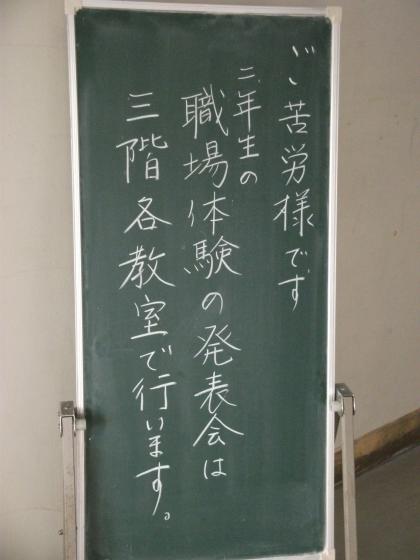 ご苦労様です
二年生の
職場体験の発表会は
三階各教室で行います。